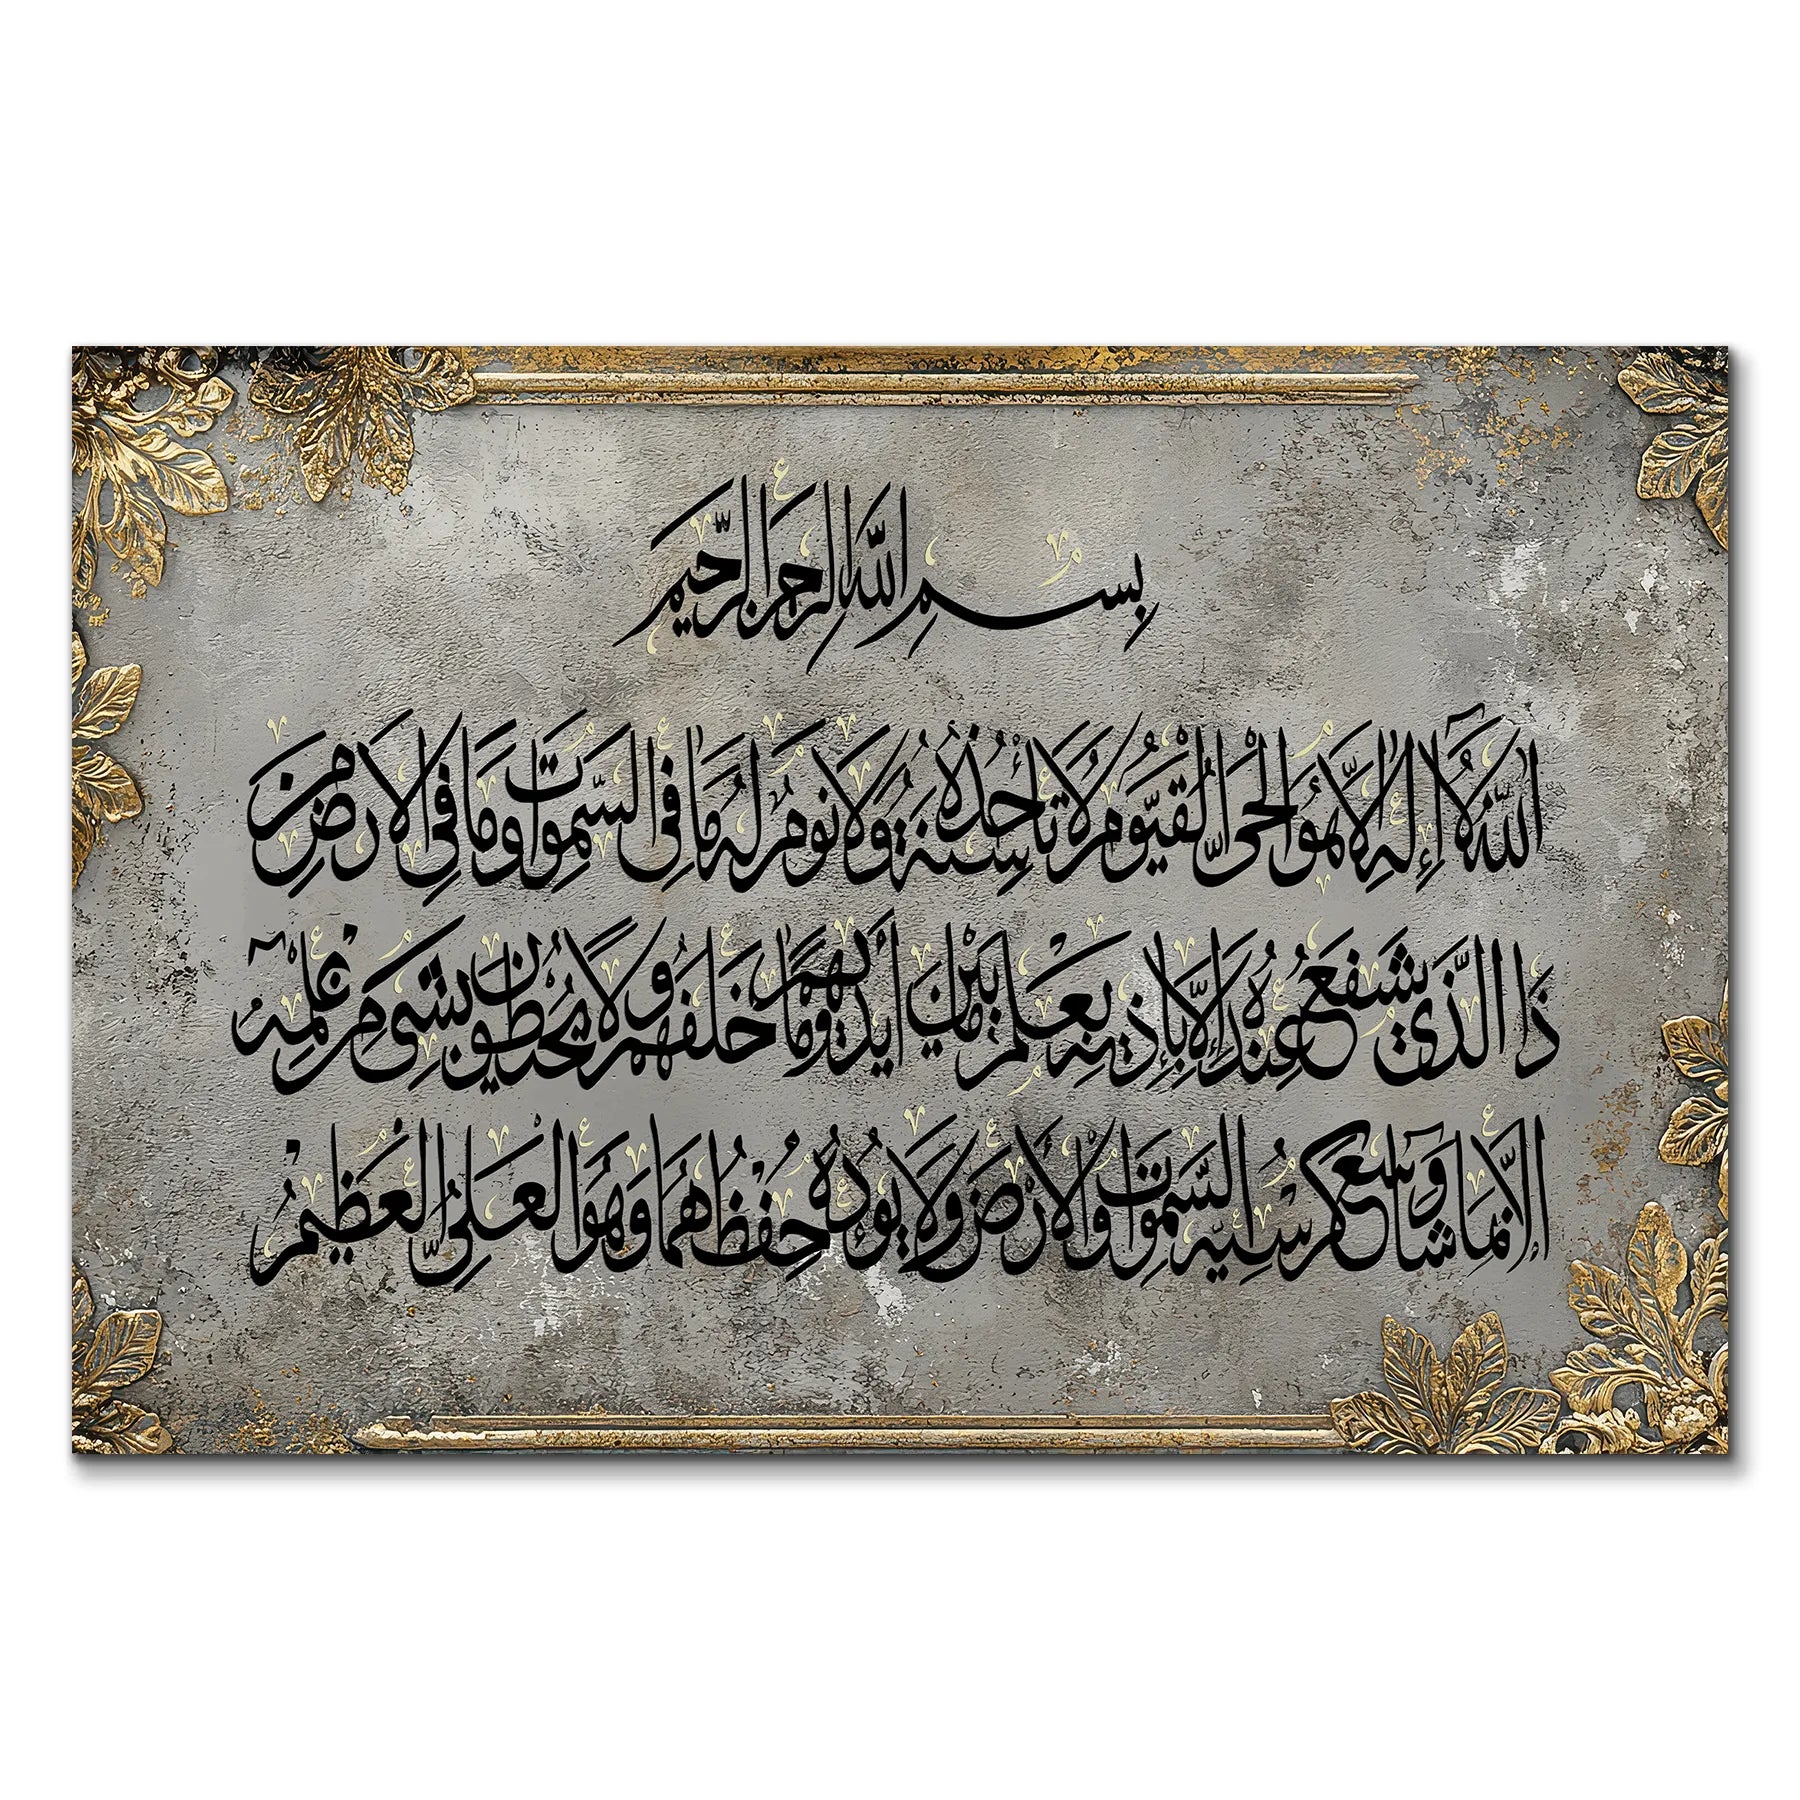 بِسْمِ اللّٰهِ الرَّحْمٰنِ الرَّحِيمِ
اللّٰهُ لَا إِلٰهَ إِلَّا هُوَ الْحَيُّ الْقَيُّومُ لَا تَأْخُذُهُ سِنَةٌ وَلَا نَوْمٌ لَهُ مَا فِي السَّمٰوَاتِ وَمَا فِي الْأَرْضِ مَنْ
ذَا الَّذِي يَشْفَعُ عِنْدَهُ إِلَّا بِإِذْنِهِ يَعْلَمُ مَا بَيْنَ أَيْدِيهِمْ وَمَا خَلْفَهُمْ وَلَا يُحِيطُونَ بِشَيْءٍ مِنْ عِلْمِهِ
إِلَّا بِمَا شَاءَ وَسِعَ كُرْسِيُّهُ السَّمٰوَاتِ وَالْأَرْضَ وَلَا يَئُودُهُ حِفْظُهُمَا وَهُوَ الْعَلِيُّ الْعَظِيمُ